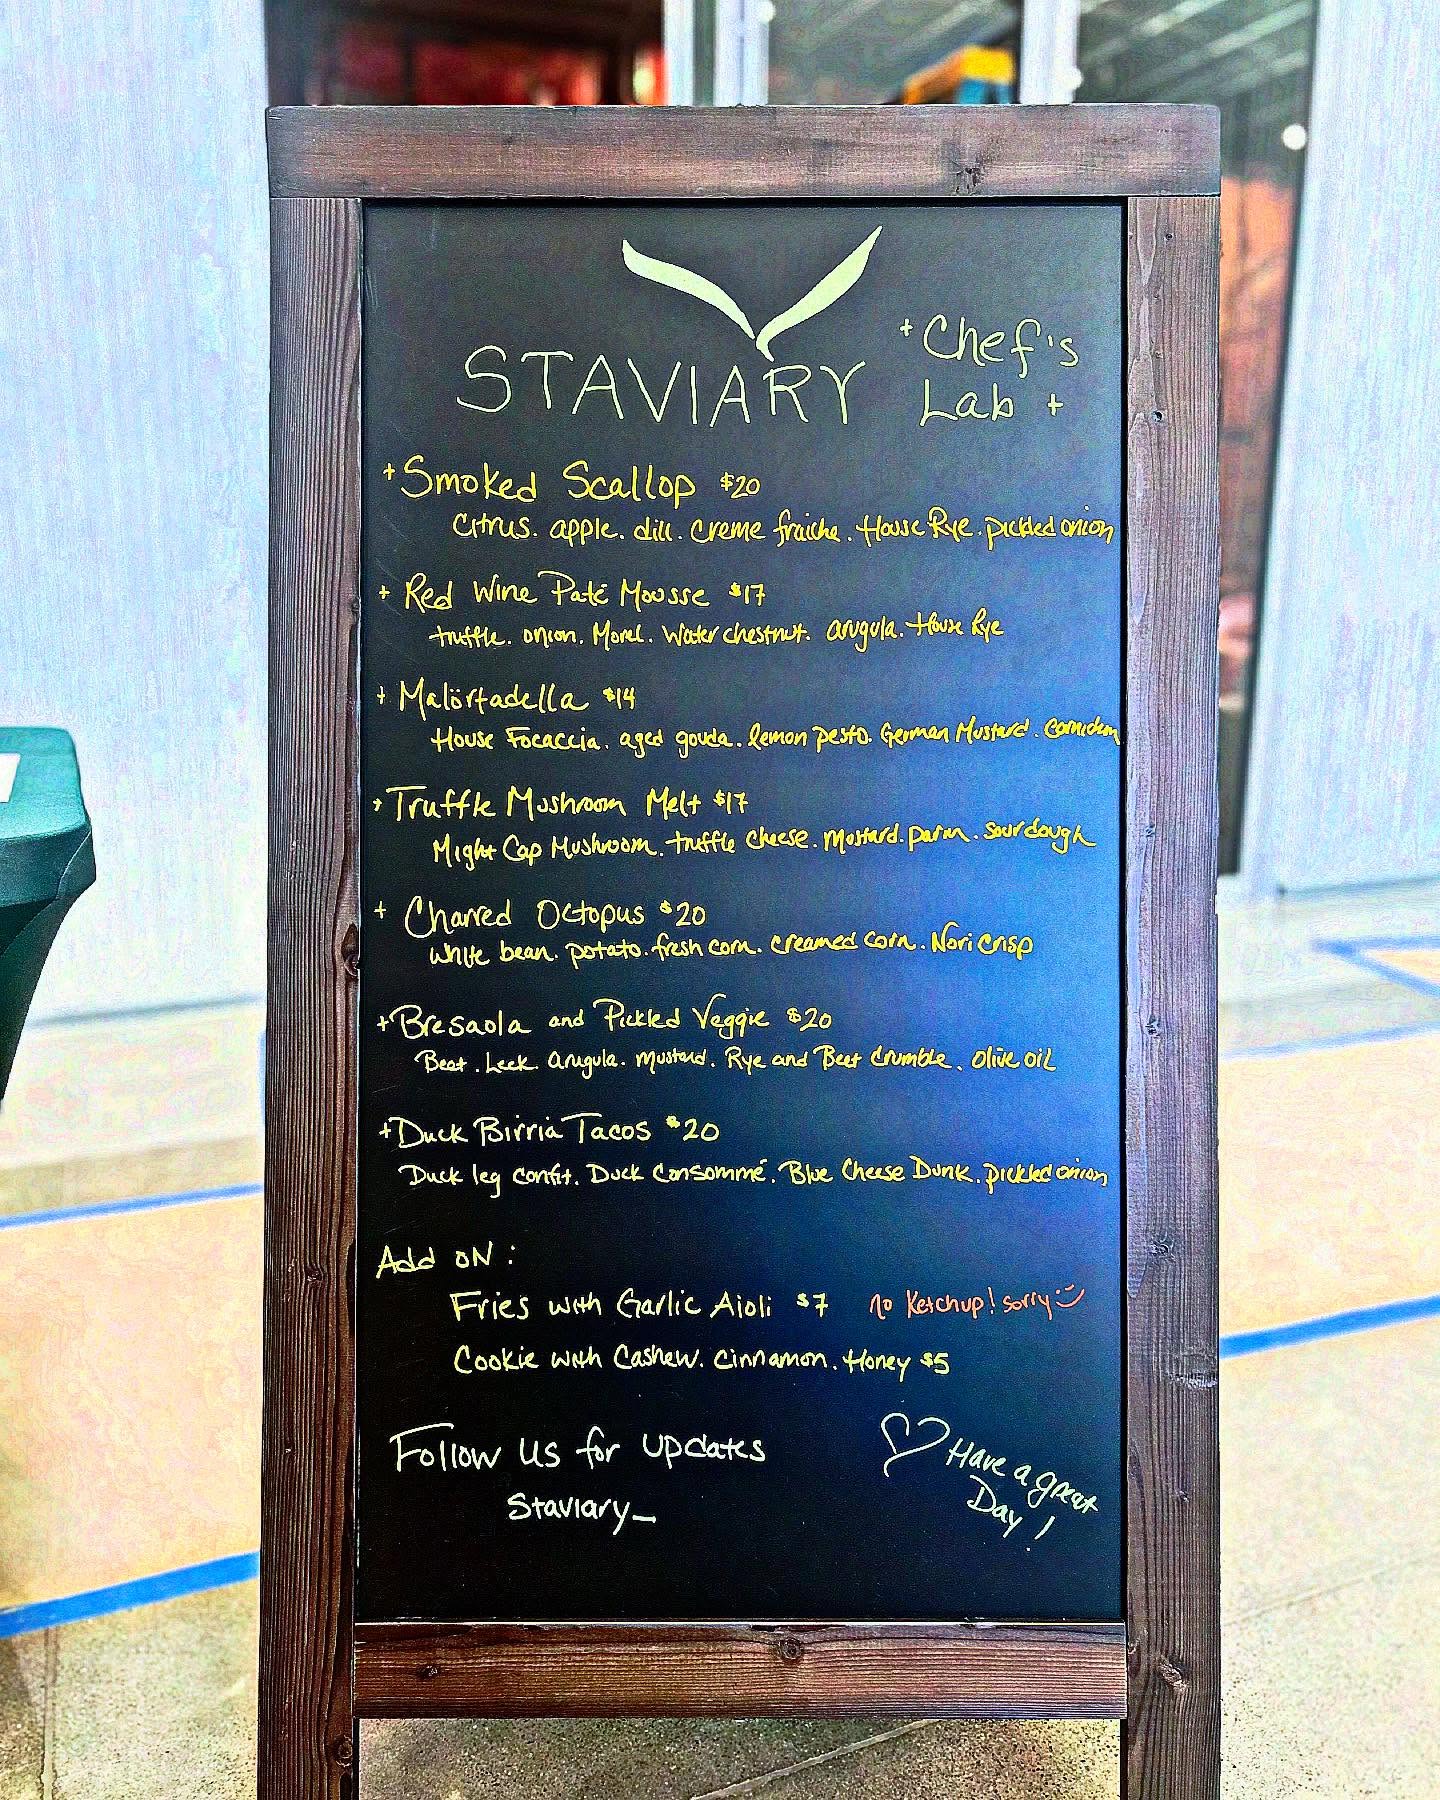 STAVIARY
+ Chef's
Lab +
+ Smoked Scallop $20
Citrus. apple. dill. Creme fraiche. House Rye. pickled onion
+ Red Wine Paté Mousse $17
truffle. onion. Morel. Water chestnut. arugula. House Rye
+ Malörtadella $14
House Focaccia. aged gouda. lemon pesto. German Mustard.
+ Truffle Mushroom Melt $17
Might Cap Mushroom. truffle cheese. Mustard. parm. sourdough
+ Charred Octopus $20
White bean. potato. fresh corn. creamed corn. Nori crisp
+ Bresaola and Pickled Veggie $20
Beet. Leek. arugula. mustard. Rye and Beet Crumble. Olive oil
+ Duck Birria Tacos $20
Duck leg confit. Duck Consommé. Blue Cheese Dunk. pickled onion
Add ON:
Fries with Garlic Aioli $7 no Ketchup! sorry
Cookie with Cashew. Cinnamon. Honey $5
Follow us for updates
Staviary_
Have a great
Day!